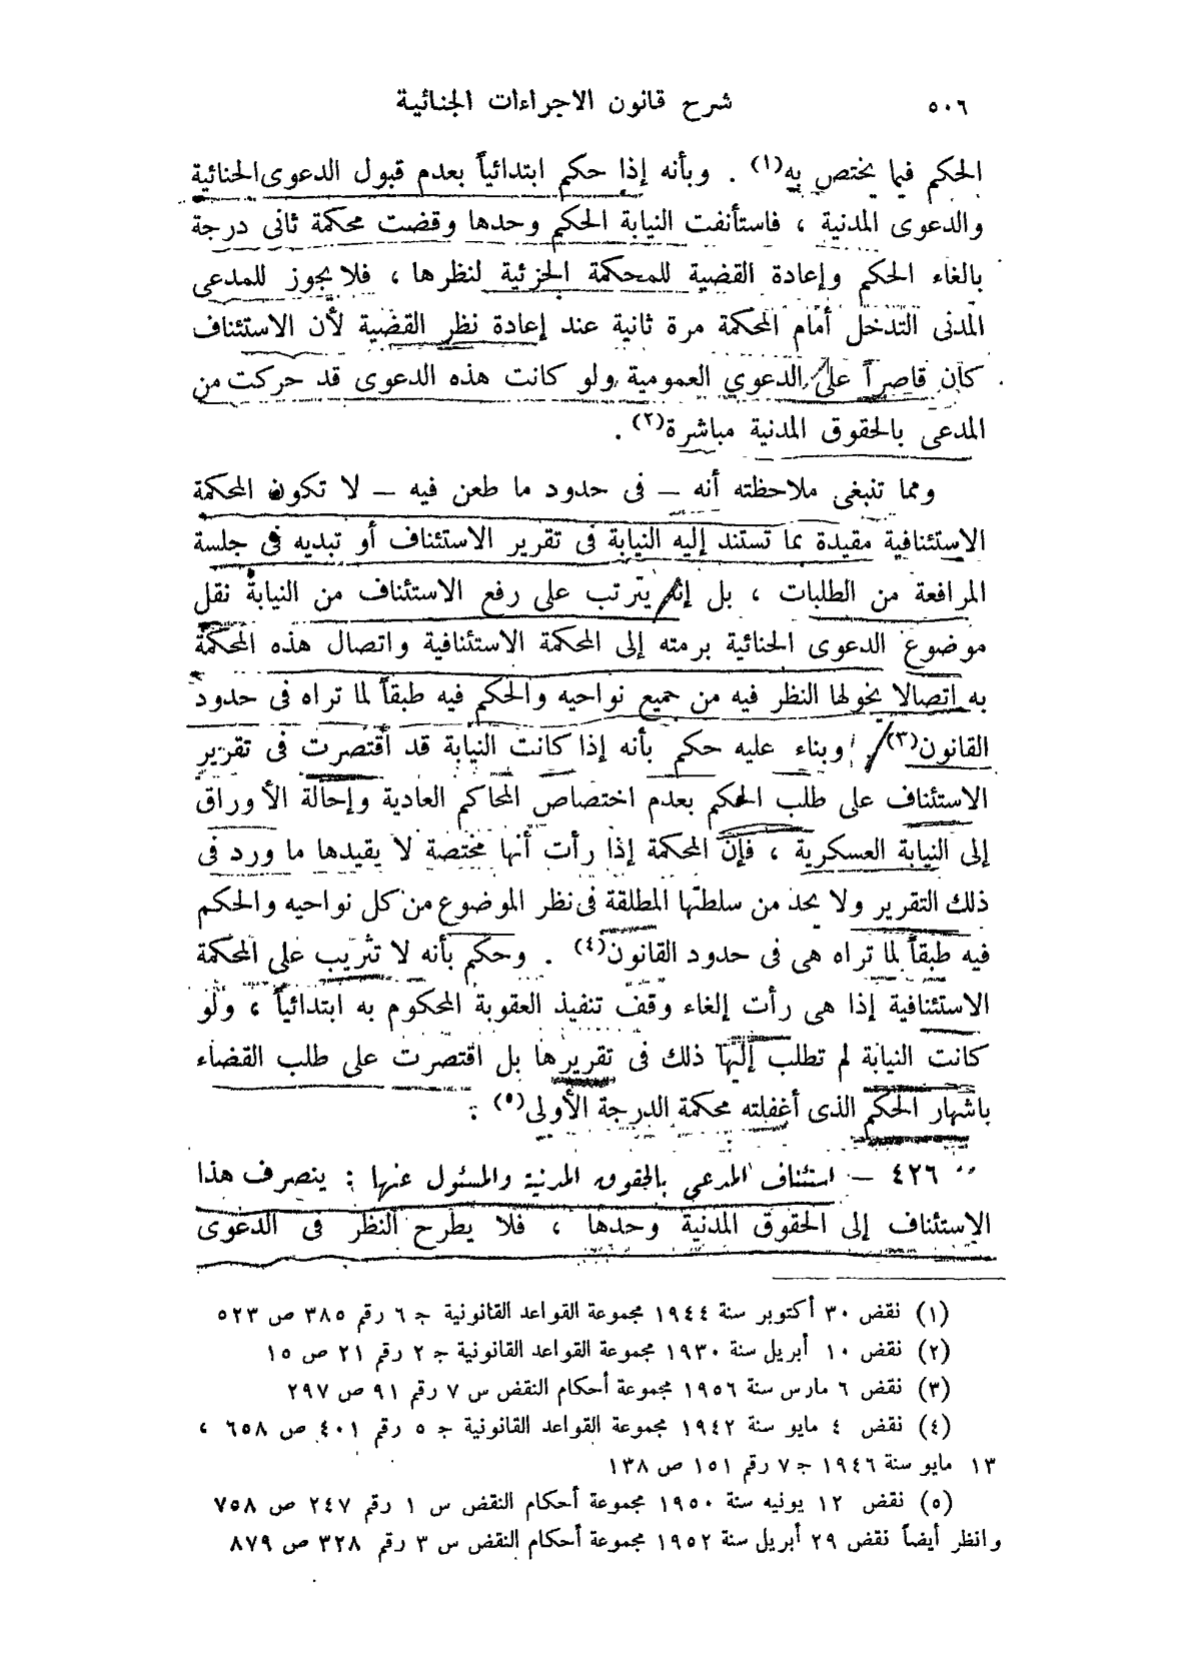 ٥٠٦ شرح قانون الاجراءات الجنائية
الحكم فيما يختص به(١) . وبأنه إذا حكم ابتدائياً بعدم قبول الدعوى الجنائية
والدعوى المدنية ، فاستأنفت النيابة الحكم وحدها وقضت محكمة ثانى درجة
بالغاء الحكم وإعادة القضية للمحكمة الجزئية لنظرها ، فلا يجوز للمدعى
المدنى التدخل أمام المحكمة مرة ثانية عند إعادة نظر القضية لأن الاستئناف
كان قاصراً على الدعوى العمومية ولو كانت هذه الدعوى قد حركت من
المدعى بالحقوق المدنية مباشرة(٢) .
ومما تنبغى ملاحظته أنه – فى حدود ما طعن فيه – لا تكون المحكمة
الاستئنافية مقيدة بما تستند إليه النيابة فى تقرير الاستئناف أو تبديه فى جلسة
المرافعة من الطلبات ، بل إنه يترتب على رفع الاستئناف من النيابة نقل
موضوع الدعوى الجنائية برمته إلى المحكمة الاستئنافية واتصال هذه المحكمة
به اتصالا يخولها النظر فيه من جميع نواحيه والحكم فيه طبقاً لما تراه فى حدود
القانون(٣) . وبناء عليه حكم بأنه إذا كانت النيابة قد اقتصرت فى تقرير
الاستئناف على طلب الحكم بعدم اختصاص المحاكم العادية وإحالة الأوراق
إلى النيابة العسكرية ، فإن المحكمة إذا رأت أنها مختصة لا يقيدها ما ورد فى
ذلك التقرير ولا يحد من سلطتها المطلقة فى نظر الموضوع من كل نواحيه والحكم
فيه طبقاً لما تراه هى فى حدود القانون(٤) . وحكم بأنه لا تثريب على المحكمة
الاستئنافية إذا هى رأت إلغاء وقف تنفيذ العقوبة المحكوم به ابتدائياً ، ولو
كانت النيابة لم تطلب إليها ذلك فى تقريرها بل اقتصرت على طلب القضاء
باشهار الحكم الذى أغفلته محكمة الدرجة الأولى(٥) .
٤٢٦ – استئناف المدعي بالحقوق المدنية والمسئول عنها : ينصرف هذا
الاستئناف إلى الحقوق المدنية وحدها ، فلا يطرح النظر فى الدعوى
(١) نقض ٣٠ أكتوبر سنة ١٩٤٤ مجموعة القواعد القانونية ج ٦ رقم ٣٨٥ ص ٥٢٣
(٢) نقض ١٠ أبريل سنة ١٩٣٠ مجموعة القواعد القانونية ج ٢ رقم ٢١ ص ١٥
(٣) نقض ٦ مارس سنة ١٩٥٦ مجموعة أحكام النقض س ٧ رقم ٩١ ص ٢٩٧
(٤) نقض ٤ مايو سنة ١٩٤٢ مجموعة القواعد القانونية ج ٥ رقم ٤٠١ ص ٦٥٨ ،
١٣ مايو سنة ١٩٤٦ ج ٧ رقم ١٥١ ص ١٣٨
(٥) نقض ١٢ يونيه سنة ١٩٥٠ مجموعة أحكام النقض س ١ رقم ٢٤٧ ص ٧٥٨
وانظر أيضاً نقض ٢٩ أبريل سنة ١٩٥٢ مجموعة أحكام النقض س ٣ رقم ٣٢٨ ص ٨٧٩